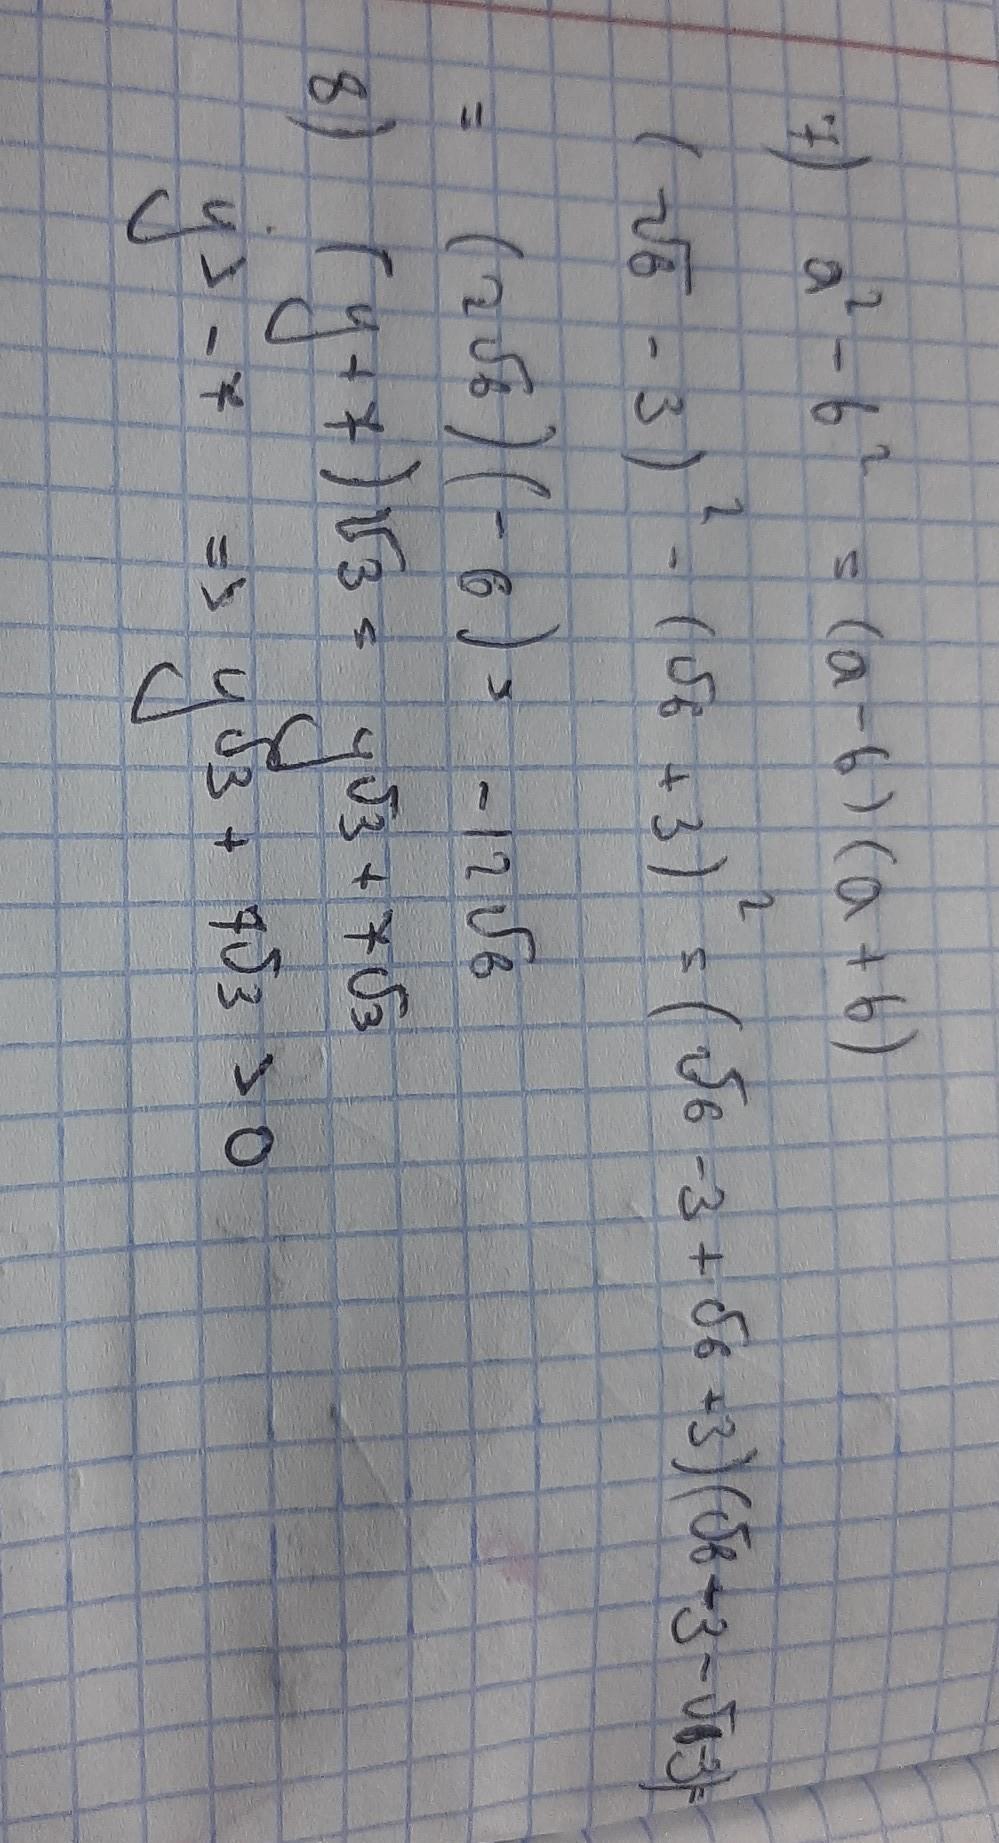 7) a² - b² = (a-b)(a+b)
(√6 - 3)² - (√6 + 3)² = (√6 - 3 + √6 + 3)(√6 - 3 - √6 - 3) =
= (2√6)(-6) = -12√6
8) (y + 7)√3 = y√3 + 7√3
y > -7 => y√3 + 7√3 > 0